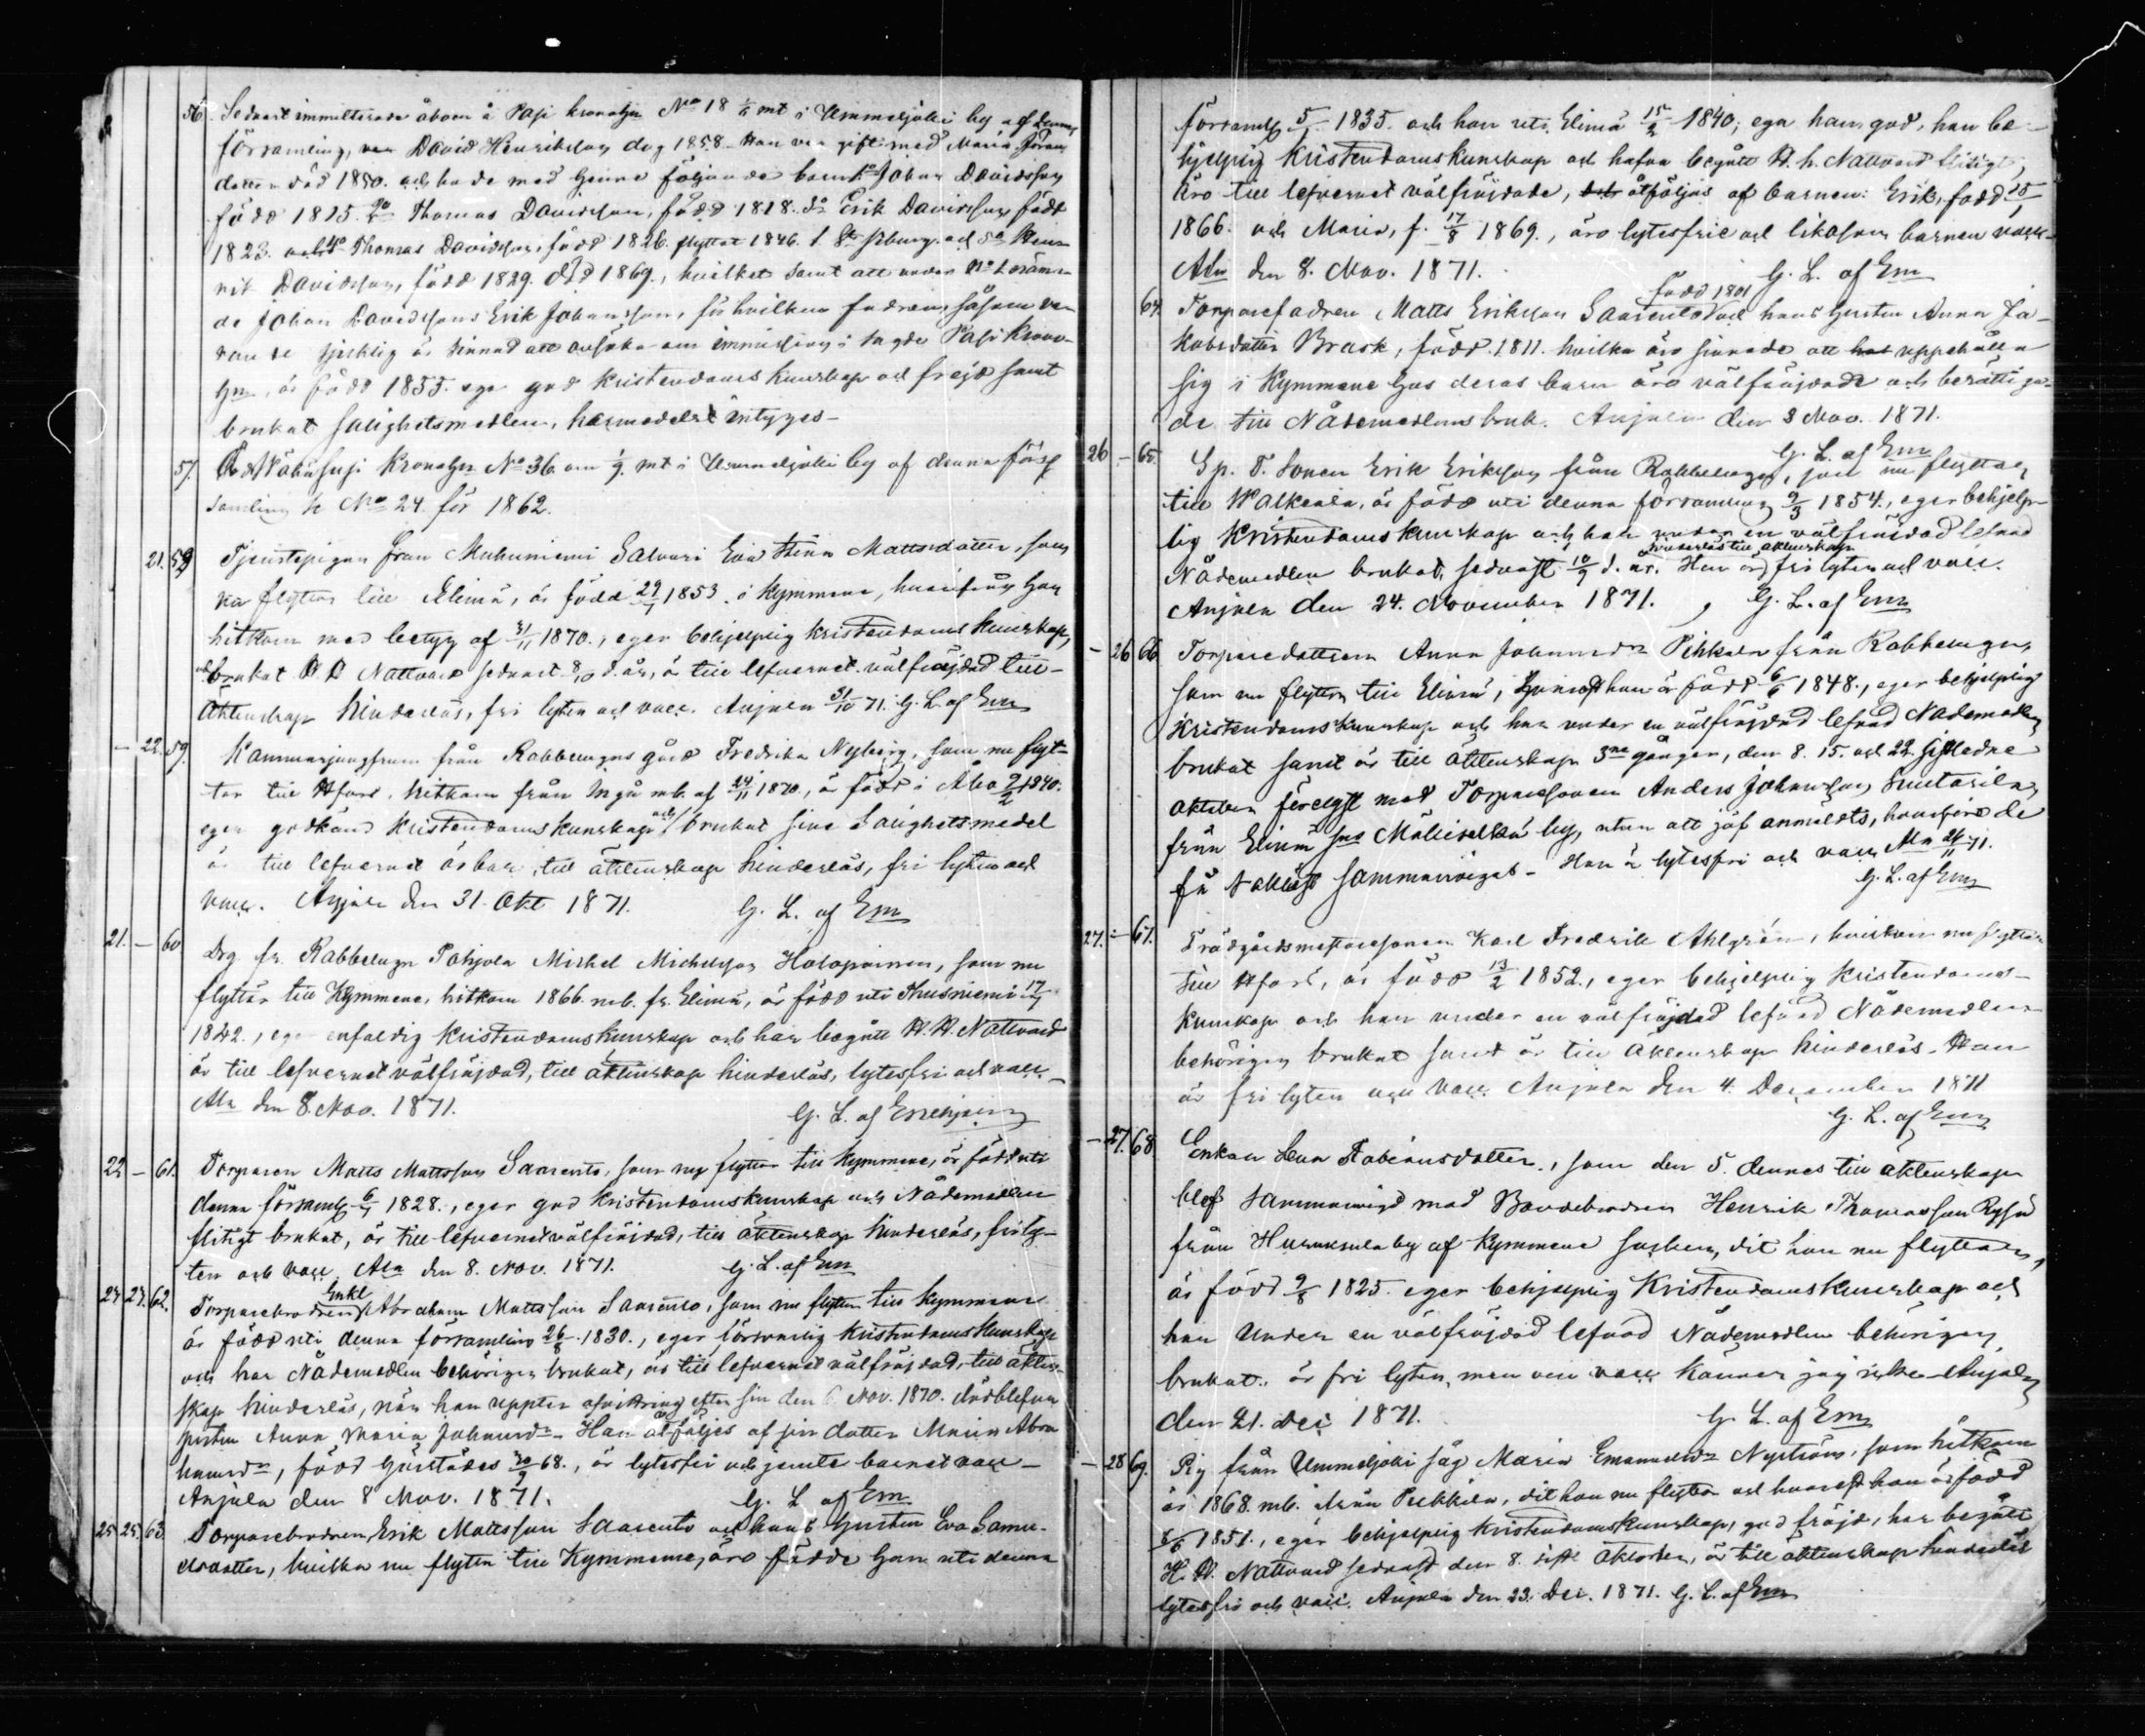 56. Sednast immitterade åboen å Pasi kronohgn No 18 1/6 mt i Ummeljoki by af denna
församling, David Henriksson dog 1858. Han var gift med Maria Johans
dotter död 1850. och hade med henne följande barn 1o Johan Davidsson
född 1815. 2o Thomas Davidsson, född 1818. 3o Erik Davidsson född
1823. och 4o Thomas Davidsson, född 1826. flyttat 1846. t. St Pburg. och 5o Hen-
rik Davidsson, född 1829. död 1869., hvilket samt att under No 1 nämn-
de Johan Davidssons Erik Johansson, för hvilken fadren såsom va-
rande sjuklig är sinnad att ansöka om immission i sagde Pasi krono-
hgn, är född 1855. ega god kristendoms kunskap och frejd samt
brukat salighetsmedlen, härmedelst intygas –
57. kronohgn No 36. om 1/9. mt i Ummeljoki by af denna för-
samling No 24 för 1862.
21. 58 Tjenstepigan från Muhuniemi Salvari Eva Stina Mattsdotter, som
nu flyttar till Elimä, är född 29/1 1853. i Kymmene, hvarifrån hon
hitkom med betyg af 31/11 1870., eger behjelplig kristendoms kunskap,
och brukat H. H. Nattvard sednast 8/10 d. år, är till lefvernet välfräjdad till
äktenskap hinderlös, fri lyten och vacc. Anjala 31/10 71. G. L. af Em
– 22. 59. Kammarjungfrun från Rabbelugns gård Fredrika Nyberg, som nu flyt-
tar till Hfors. hitkom från Ingå mb. af 24/11 1870., är född i Åbo 9/2 1840.
eger godkänd kristendomskunskap och brukat sina Salighetsmedel
är till lefvernet ärbar, till äktenskap hinderlös, fri lyten och
vacc. Anjala den 31. Okt 1871. G. L. af Em
21. – 60 Drg fr. Rabbelugn Pohjola Mickel Michelsson Holopainen, som nu
flyttar till Kymmene, hitkom 1866. mb. fr. Elimä, är född uti Thusniemi 17/7
1842., eger enfaldig kristendomskunskap och har begått H. H. Nattvard
är till lefvernet välfräjdad, till äktenskap hinderlös, lytesfri och vacc. –
Ala den 8. Nov. 1871. G. L. af Enehjelm
22 – 61. Torparen Matts Mattsson Saarento, som nu flyttar till Kymmene, är född uti
denna församlg 6/1 1828., eger god kristendomskunskap och Nådemedlen
flitigt brukat, är till lefvernet välfräjdad, till äktenskap hinderlös, fri ly-
ten och vacc. Ala den 8. Nov. 1871. G. L. af Em
23 23. 62. Torparebrodren Enkl Abraham Mattsson Saarento, som nu flyttar till Kymmene
är född uti denna församling 26/8 1830., eger försvarlig kristendomskunskap
och har Nådemedlen behörigen brukat, är till lefvernet välfräjdad, till äkten-
skap hinderlös, när han uppter afvittring efter sin den 6 Nov. 1870. dödblefvna
hustru Anna Maria Johansdr – Han åtföljes af sin dotter Maria Abra-
hamsdr, född härstädes 30/9 68., är lytesfri och jemte barnet vacc –
Anjala den 8 Nov. 1871. G. L. af Em
25 25. 63 Torparebrodren Erik Mattsson Saarento och hans hustru Eva Samu-
elsdotter, hvilka nu flyttar till Kymmene, äro födde han uti denna
församlg 5/1 1835. och hon uti Elimä 15/2 1840; ega han god, hon be-
hjelplig kristendomskunskap och hafva begått H. h. Nattvard flitigt,
äro till lefvernet välfräjdade, åtföljas af barnen: Erik, född 25/1
1866. och Maria, f. 17/8 1869., äro lytesfrie och likasom barnen vacc –
Ala den 8. Nov. 1871. G. L. af Em
64. Torparefadren Matts Eriksson Saarento född 1801 och hans hustru Anna Ja-
kobsdotter Brask, född 1811. hvilka äro sinnade att uppehålla
sig i Kymmene hos deras barn äro välfräjdade och berättiga-
de till Nådemedlens bruk. Anjala den 8 Nov. 1871.
G. L. af Em
26 – 65. Sp. T. Sonen Erik Eriksson från Rabbelugn, som nu flyttar
till Walkeala, är född uti denna församling 9/3 1854., eger behjelp-
lig Kristendomskunskap och har under en välfräjdad lefnad
Nådemedlen brukat, sednast 10/9 d. år. Han är hinderlös till äktenskap fri lyten och vacc.
Anjala den 24. November 1871. G. L. af Em
– 26 66 Torparedottren Anna Johansdr Pihkala från Rabbelugn,
som nu flyttar till Elimä, hvarest hon är född 6/6 1848., eger behjelplig
Kristendomskunskap och har under en välfräjdad lefnad Nådemedlen
brukat samt är till äktenskap 3ne gånger, den 8. 15. och 22. sistledne
oktober förelyst med Torparesonen Anders Johansson Suntarila
från Elimä sns by, utan att jäf anmäldts, hvarföre de
få sammanvigas – Hon är lytesfri och vacc. Ala 24/11 71.
G. L. af Em
27. – 67. Trädgårdsmästaresonen Karl Fredrik Ahlgrén, hvilken nu flyttar
till Hfors, är född 13/2 1852., eger behjelplig Kristendoms-
kunskap och har under en välfräjdad lefnad Nådemedlen
behörigen brukat samt är till äktenskap hinderlös. Han
är fri lyten och vacc. Anjala den 4. December 1871
G. L. af Em
– 27. 68. Enkan Eva Fabiansdotter, som den 5. dennes till äktenskap
blef sammanvigd med Bondebrodren Henrik Thomasson Rysä
från Huruksela by af Kymmene socken, dit hon nu flyttar,
är född 9/8 1825. eger behjelplig Kristendomskunskap och
har Under en välfräjdad lefnad Nådemedlen behörigen
brukat. är fri lyten, men om vacc känner jag icke Anjala
den 21. dec 1871. G. L. af Em
– 28 69. Pig från Ummeljoki såg Maria Emanuelsdr Nyström, som hitkom
år 1868. mb. från Pukkila, dit hon nu flyttar och hvarest hon är född
5/6 1851., eger behjelplig kristendomskunskap, god fräjd, har begått
H. H. Nattvard sednast den 8. sistl. Oktober, är till äktenskap hinderlös
lytesfri och vacc. Anjala den 23. Dec. 1871. G. L. af Em